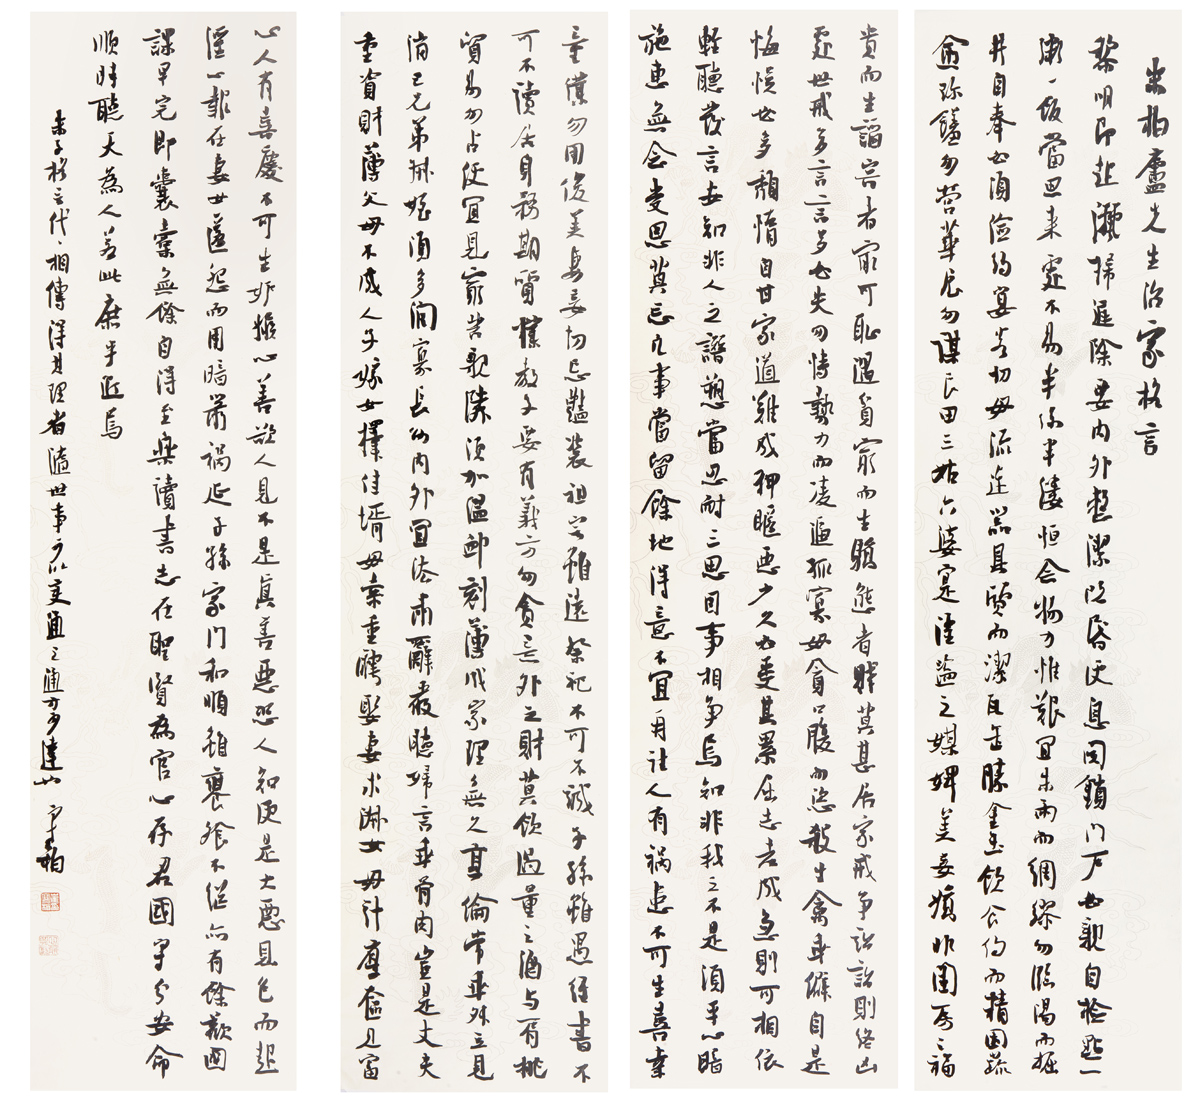 朱柏廬先生治家格言
黎明即起灑掃庭除要內外整潔既昏便息関鎖門户必親自檢點一
粥一飯當思来處不易半絲半縷恒念物力惟艱宜未雨而綢繆勿臨渴而掘
井自奉必須儉約宴客切毋流連器具質而潔瓦缶勝金玉飲食約而精園蔬
愈珍饈勿營華屋勿謀良田三姑六婆實淫盜之媒婢美妾嬌非閨房之福
童僕勿用俊美妻妾切忌艷裝祖宗雖遠祭祀不可不誠子孫雖愚經書不
可不讀居身務期質樸教子要有義方勿貪意外之財莫飲過量之酒与肩挑
貿易勿占便宜見窮苦親隣須加温卹刻薄成家理無久享倫常乖舛立見
消亡兄弟叔姪須多潤寡長幼內外宜法肅辭嚴聽婦言乖骨肉豈是丈夫
重資財薄父母不成人子嫁女擇佳壻毋索重聘娶妻求淑女毋計厚奩見富
貴而生諂容者最可恥遇貧窮而生驕態者賤莫甚居家戒争訟訟則終凶
處世戒多言言多必失勿恃勢力而凌逼孤寡毋貪口腹而恣殺生禽乖僻自是
悔悮必多頹惰自甘家道難成狎暱惡少久必受其累屈志老成急則可相依
輕聽發言安知非人之譖愬當忍耐三思因事相争焉知非我之不是須平心暗
施惠無念受恩莫忘凡事當留餘地得意不宜再往人有禍患不可生喜幸
心人有喜慶不可生妒嫉心善欲人見不是真善惡恐人知便是大惡見色而起
淫心報在妻女匿怨而用暗箭禍延子孫家門和順雖饔飧不继亦有餘歡國
課早完即囊橐無餘自得至樂讀書志在聖賢為官心存君國守分安命
順時聽天為人若此庶乎近焉
朱子格言代代相傳得其理者隨世事之以变通之通可